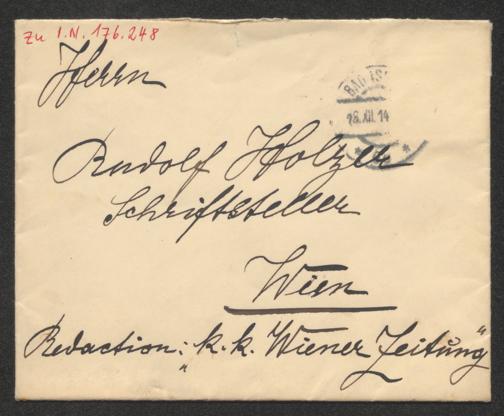 zu I.N. 176.248
Herrn
BAD IS
18.XII.14
Rudolf Holzer
Schriftsteller
Wien
Redaction: „k. k. Wiener Zeitung"